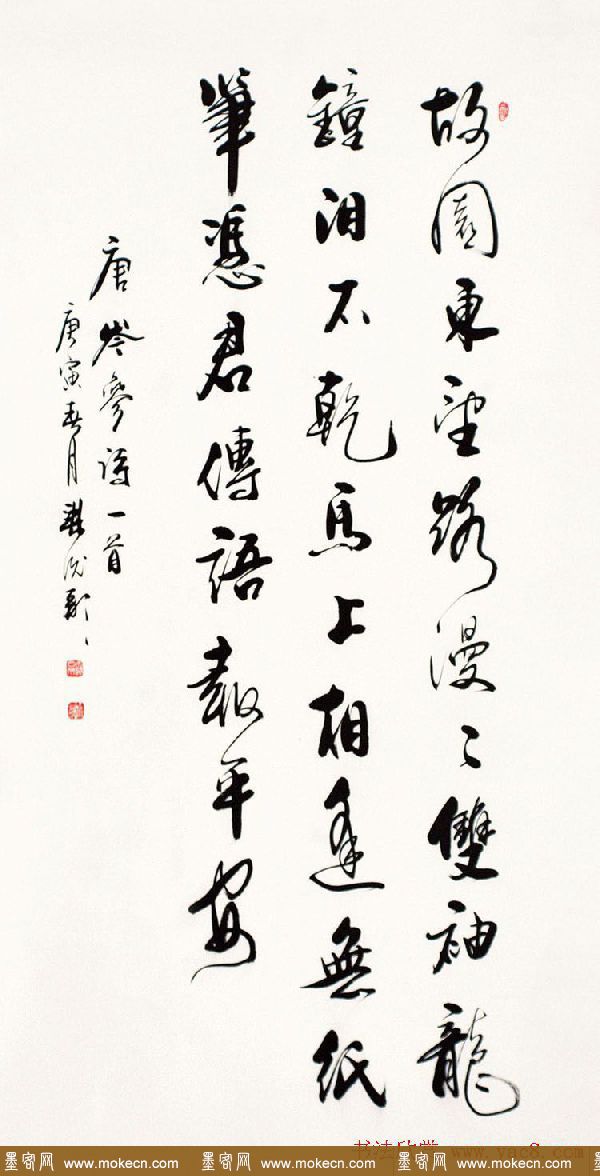 故園東望路漫〻雙袖龍
鐘泪不乾馬上相逢無紙
筆憑君傳語報平安
唐岑參詩一首
庚寅春月
书法欣赏 www.yac8.com
墨客网 www.mokecn.com 墨客网 www.mokecn.com 墨客网 www.mokecn.com